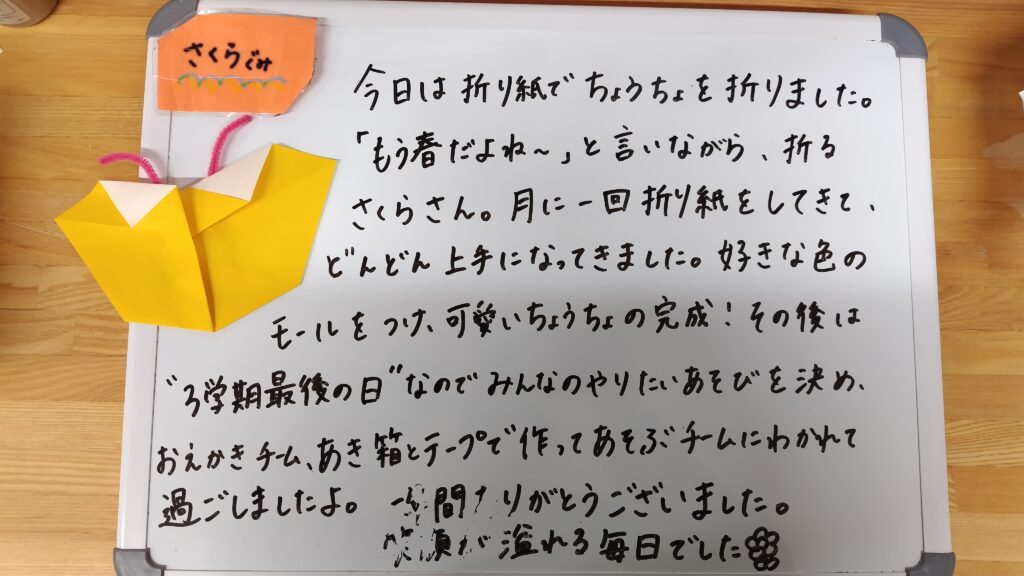 さくらぐみ
今日は折り紙でちょうちょを折りました。
「もう春だよね〜」と言いながら、折る
さくらさん。月に一回折り紙をしてきて、
どんどん上手になってきました。好きな色の
モールをつけ、可愛いちょうちょの完成！その後は
"3学期最後の日"なのでみんなのやりたいあそびを決め、
おえかきチーム、あき箱とテープで作ってあそぶチームにわかれて
過ごしましたよ。 間ありがとうございました。
が溢れる毎日でした